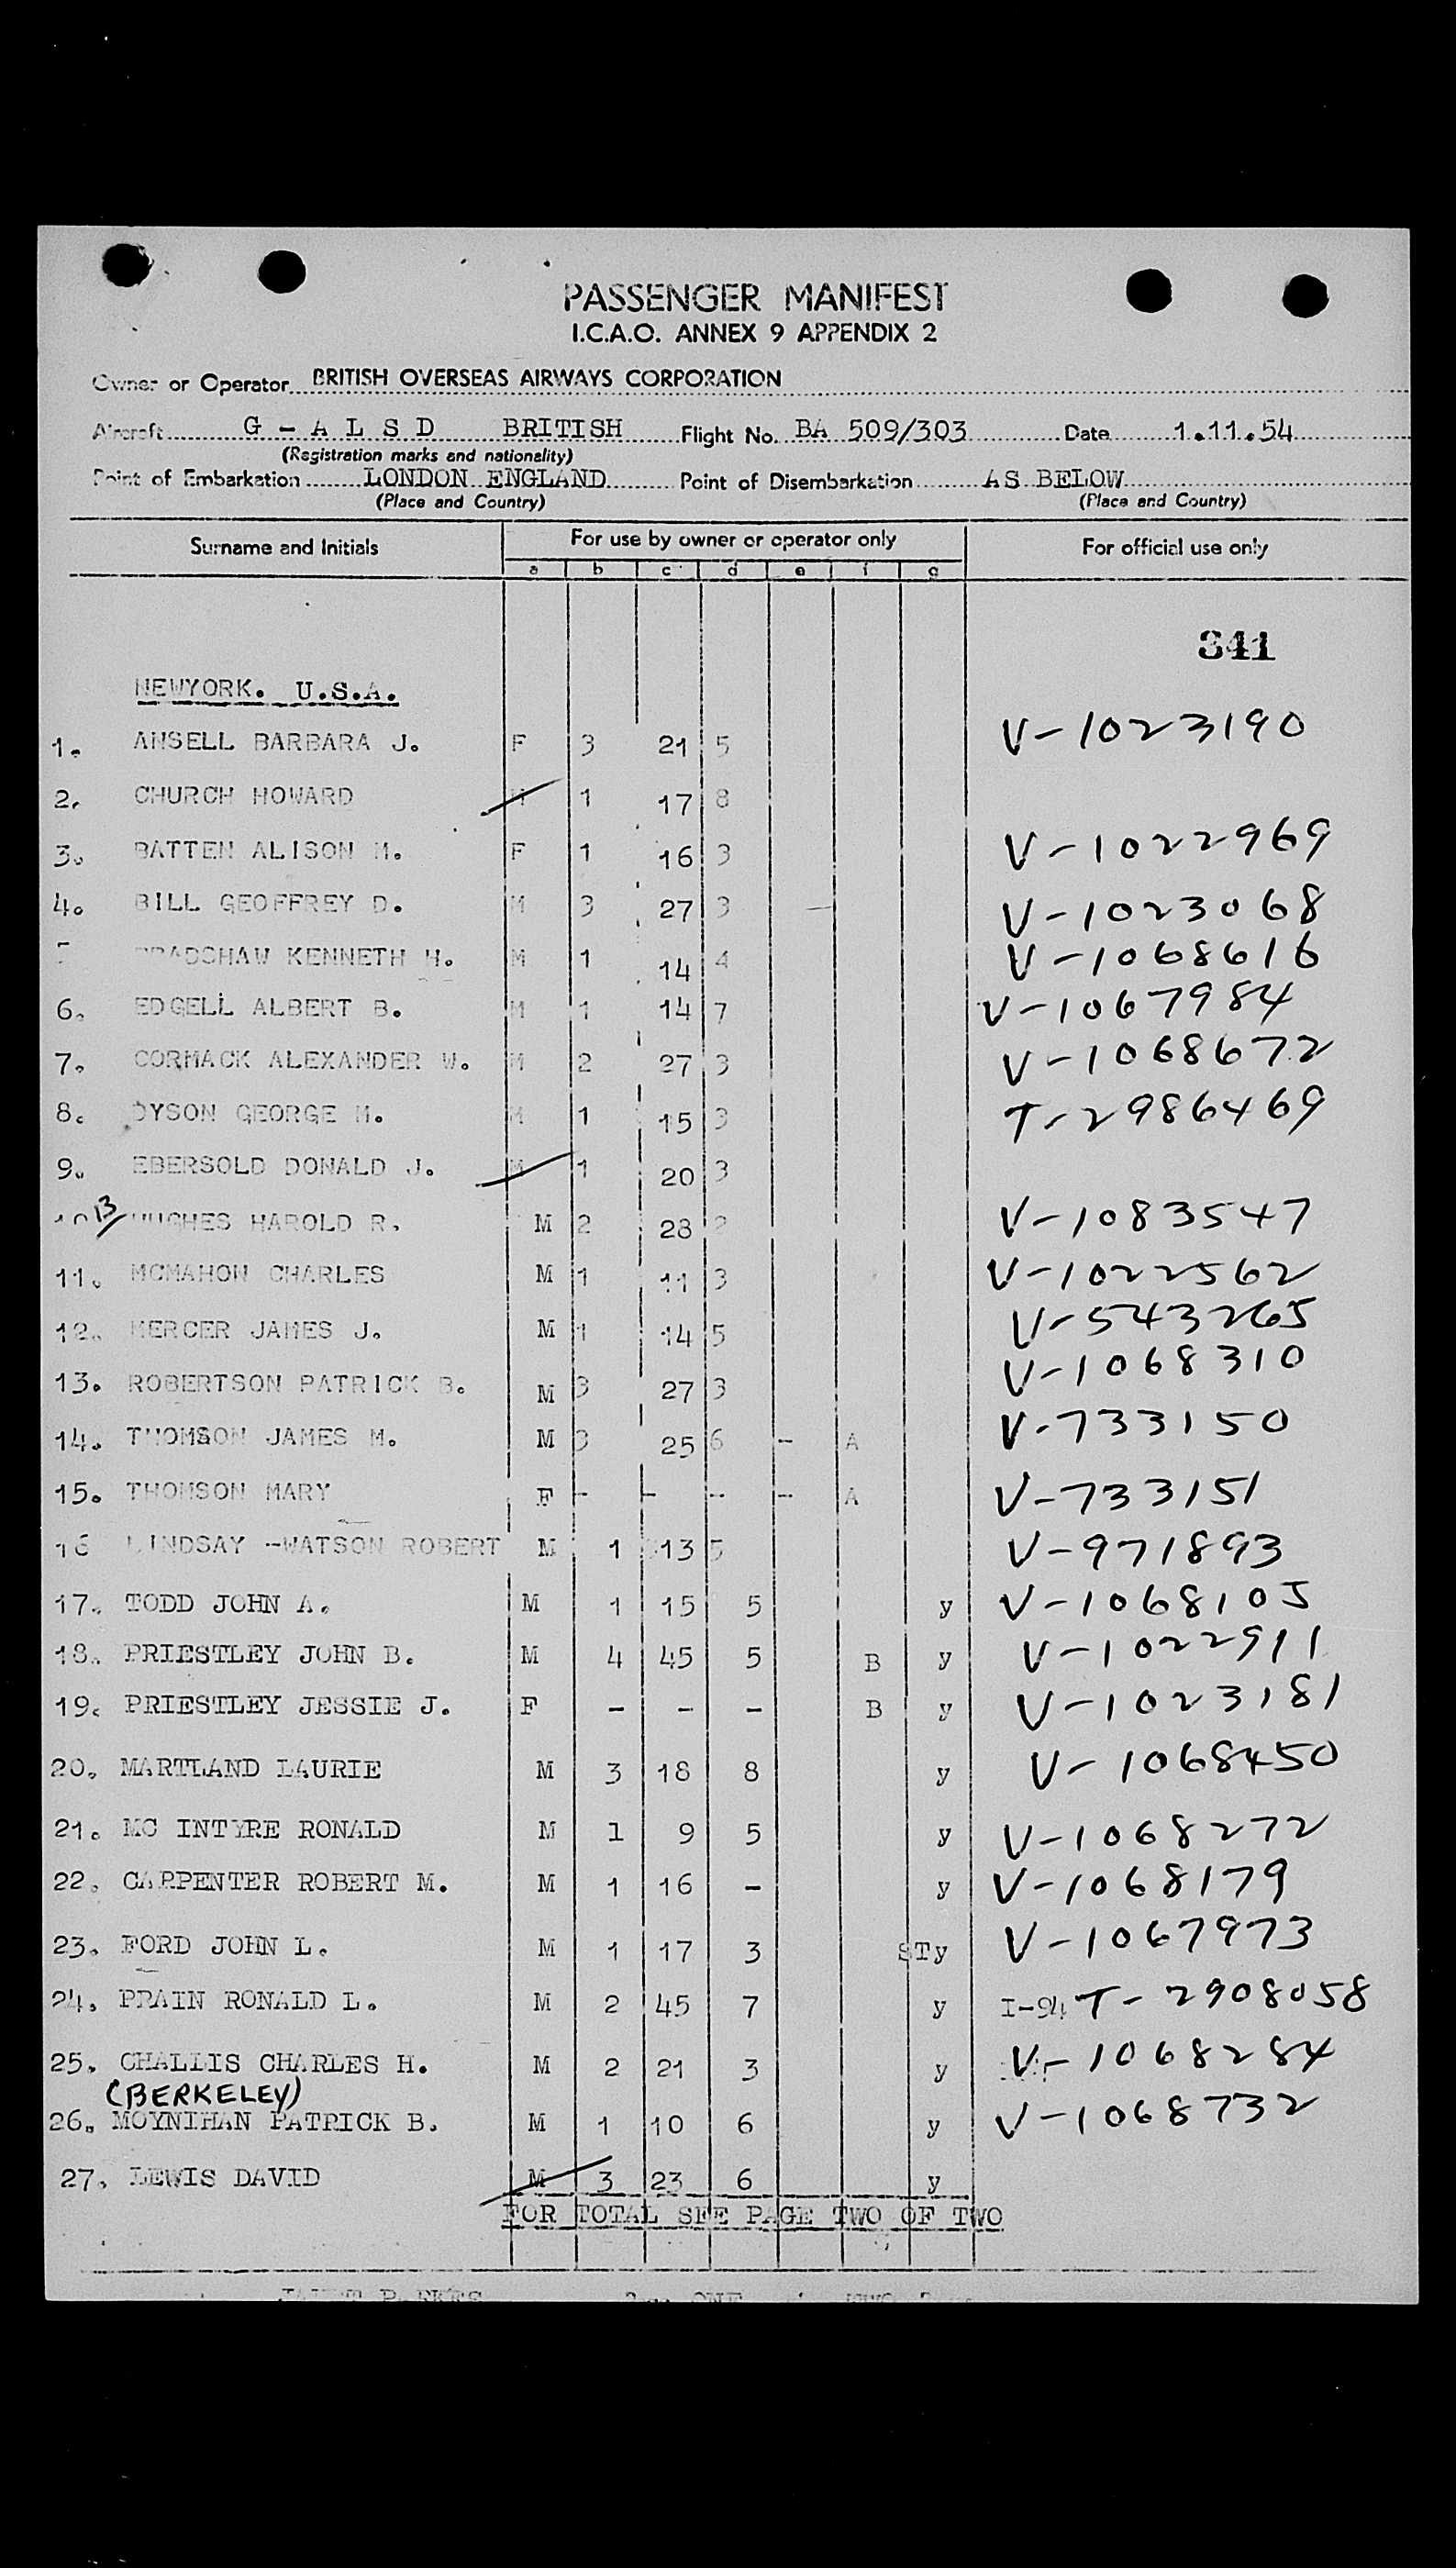 PASSENGER MANIFEST
I.C.A.O. ANNEX 9 APPENDIX 2
Owner or Operator BRITISH OVERSEAS AIRWAYS CORPORATION
Aircraft G - A L S D BRITISH Flight No. BA 509/303 Date 1.11.54
(Registration marks and nationality)
Point of Embarkation LONDON ENGLAND Point of Disembarkation AS BELOW
(Place and Country) (Place and Country)
Surname and Initials For use by owner or operator only For official use only
a b c d e f g
341
NEWYORK. U.S.A.
1. ANSELL BARBARA J. F 3 21 5 V-1023190
2. CHURCH HOWARD M 1 17 8
3. BATTEN ALISON M. F 1 16 3 V-1022969
4. BILL GEOFFREY D. M 3 27 3 — V-1023068
BRADSHAW KENNETH H. M 1 14 4 V-1068616
6. EDGELL ALBERT B. M 1 14 7 V-1067984
7. CORMACK ALEXANDER W. M 2 27 3 V-1068672
8. DYSON GEORGE M. M 1 15 3 T-2986469
9. EBERSOLD DONALD J. M 1 20 3
10 13/ HUGHES HAROLD R. M 2 28 2 V-1083547
11. MCMAHON CHARLES M 1 11 3 V-1022562
12. MERCER JAMES J. M 1 14 5 V-543265
13. ROBERTSON PATRICK B. M 3 27 3 V-1068310
14. THOMSON JAMES M. M 3 25 6 - A V-733150
15. THOMSON MARY F - - - - A V-733151
16 LINDSAY -WATSON ROBERT M 1 13 5 V-971893
17. TODD JOHN A. M 1 15 5 y V-1068105
18. PRIESTLEY JOHN B. M 4 45 5 B y V-1022911
19. PRIESTLEY JESSIE J. F - - - B y V-1023181
20. MARTLAND LAURIE M 3 18 8 y V-1068450
21. MC INTYRE RONALD M 1 9 5 y V-1068272
22. CARPENTER ROBERT M. M 1 16 - y V-1068179
23. FORD JOHN L. M 1 17 3 STy V-1067973
24. PRAIN RONALD L. M 2 45 7 y I-94 T-2908058
25. CHALLIS CHARLES H. M 2 21 3 y V-1068284
(BERKELEY)
26. MOYNIHAN PATRICK B. M 1 10 6 y V-1068732
27. LEWIS DAVID M 3 23 6 y
FOR TOTAL SEE PAGE TWO OF TWO